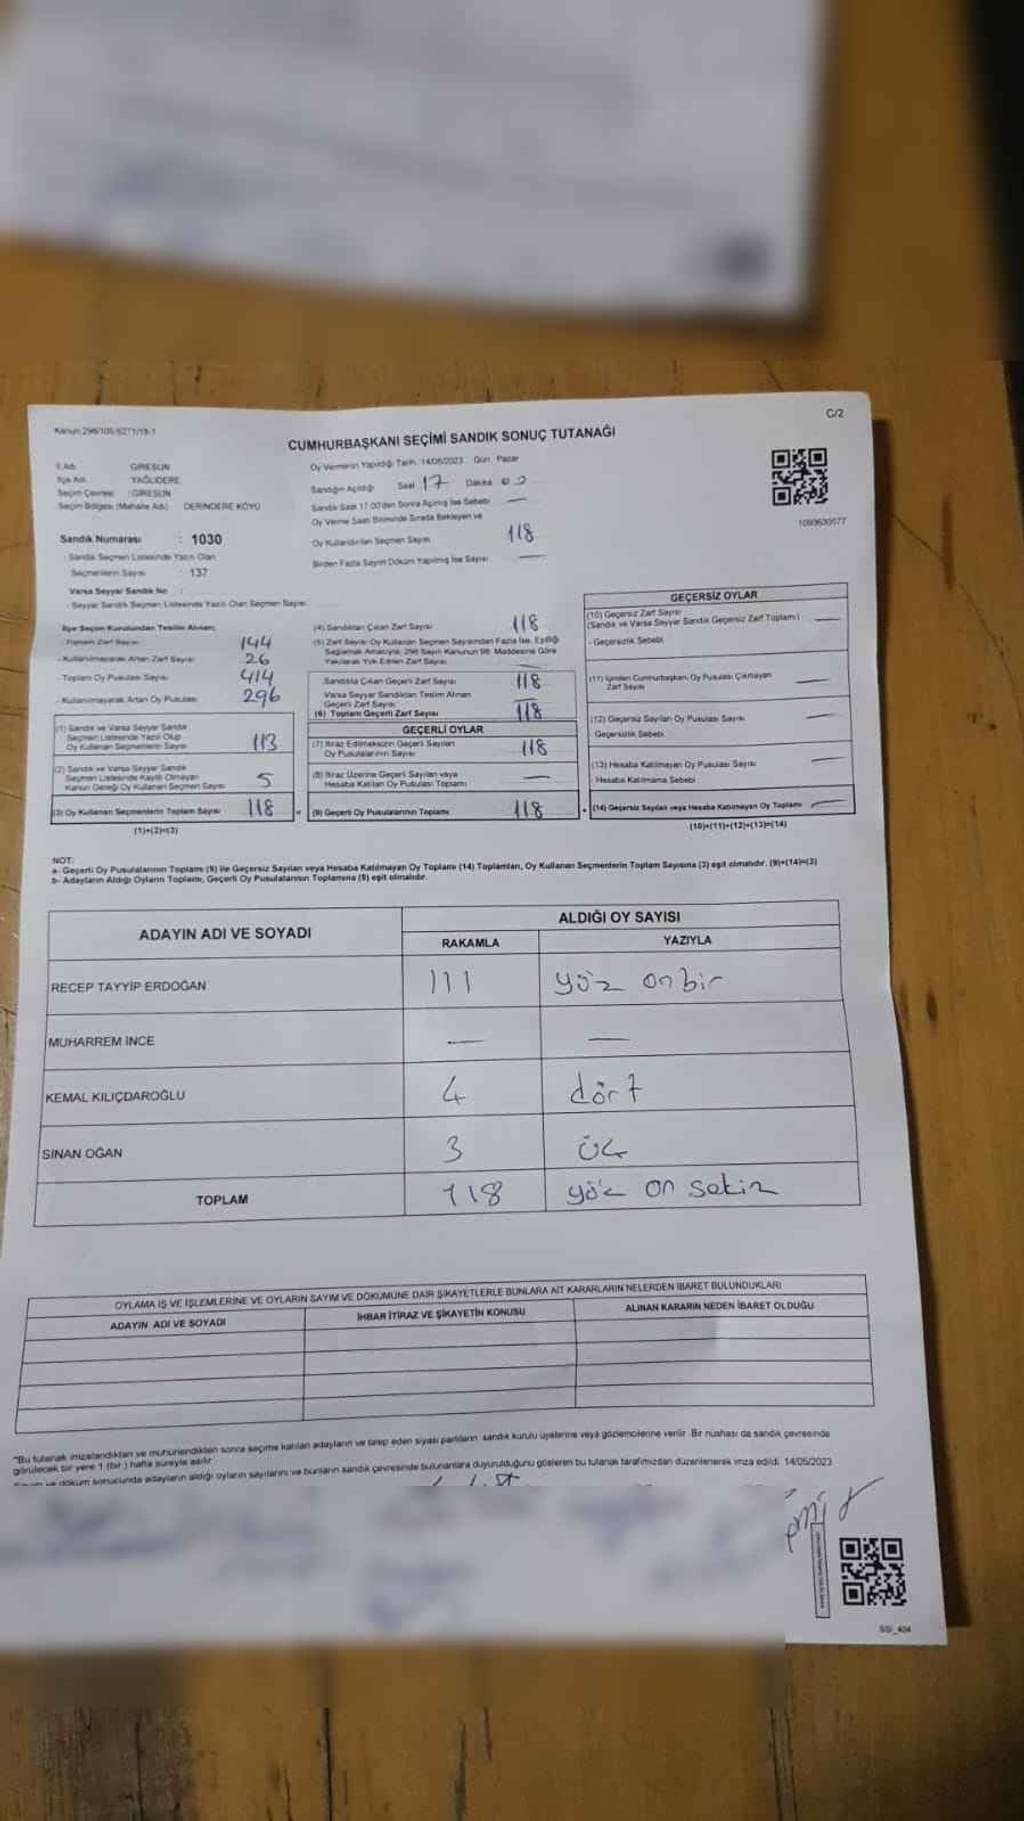 C/2
Kanun:298/105/6271/19-1
CUMHURBAŞKANI SEÇİMİ SANDIK SONUÇ TUTANAĞI
İl Adı : GİRESUN
İlçe Adı : YAĞLIDERE
Seçim Çevresi : GİRESUN
Seçim Bölgesi (Mahalle Adı) : DERİNDERE KÖYÜ
Sandık Numarası : 1030
- Sandık Seçmen Listesinde Yazılı Olan
Seçmenlerin Sayısı : 137
Varsa Seyyar Sandık No :
- Seyyar Sandık Seçmen Listesinde Yazılı Olan Seçmen Sayısı
Oy Vermenin Yapıldığı Tarih: 14/05/2023 Gün: Pazar
Sandığın Açıldığı Saat 17 Dakika 02
Sandık Saat 17.00'den Sonra Açılmış İse Sebebi —
Oy Verme Saati Bitiminde Sırada Bekleyen ve
Oy Kullandırılan Seçmen Sayısı 118
Birden Fazla Sayım Döküm Yapılmış İse Sayısı —
1093630577
İlçe Seçim Kurulundan Teslim Alınan;
- Toplam Zarf Sayısı 144
- Kullanılmayarak Artan Zarf Sayısı 26
- Toplam Oy Pusulası Sayısı 414
- Kullanılmayarak Artan Oy Pusulası 296
(1) Sandık ve Varsa Seyyar Sandık
Seçmen Listesinde Yazılı Olup
Oy Kullanan Seçmenlerin Sayısı 113
(2) Sandık ve Varsa Seyyar Sandık
Seçmen Listesinde Kayıtlı Olmayan
Kanun Gereği Oy Kullanan Seçmen Sayısı 5
(3) Oy Kullanan Seçmenlerin Toplam Sayısı 118
(1)+(2)=(3)
(4) Sandıktan Çıkan Zarf Sayısı 118
(5) Zarf Sayısı Oy Kullanan Seçmen Sayısından Fazla İse, Eşitliği
Sağlamak Amacıyla, 298 Sayılı Kanunun 98. Maddesine Göre
Yakılarak Yok Edilen Zarf Sayısı —
Sandıkta Çıkan Geçerli Zarf Sayısı 118
Varsa Seyyar Sandıktan Teslim Alınan
Geçerli Zarf Sayısı —
(6) Toplam Geçerli Zarf Sayısı 118
GEÇERLİ OYLAR
(7) İtiraz Edilmeksizin Geçerli Sayılan
Oy Pusulalarının Sayısı 118
(8) İtiraz Üzerine Geçerli Sayılan veya
Hesaba Katılan Oy Pusulası Toplamı —
(9) Geçerli Oy Pusulalarının Toplamı 118
GEÇERSİZ OYLAR
(10) Geçersiz Zarf Sayısı
(Sandık ve Varsa Seyyar Sandık Geçersiz Zarf Toplamı) —
- Geçersizlik Sebebi:
(11) İçinden Cumhurbaşkanı Oy Pusulası Çıkmayan
Zarf Sayısı —
(12) Geçersiz Sayılan Oy Pusulası Sayısı —
Geçersizlik Sebebi:
(13) Hesaba Katılmayan Oy Pusulası Sayısı —
Hesaba Katılmama Sebebi
(14) Geçersiz Sayılan veya Hesaba Katılmayan Oy Toplamı —
(10)+(11)+(12)+(13)=(14)
NOT:
a- Geçerli Oy Pusulalarının Toplamı (9) ile Geçersiz Sayılan veya Hesaba Katılmayan Oy Toplamı (14) Toplamları, Oy Kullanan Seçmenlerin Toplam Sayısına (3) eşit olmalıdır. (9)+(14)=(3)
b- Adayların Aldığı Oyların Toplamı, Geçerli Oy Pusulalarının Toplamına (9) eşit olmalıdır.
ADAYIN ADI VE SOYADI ALDIĞI OY SAYISI
RAKAMLA YAZIYLA
RECEP TAYYİP ERDOĞAN 111 yöz on bir
MUHARREM İNCE — —
KEMAL KILIÇDAROĞLU 4 dört
SİNAN OĞAN 3 üç
TOPLAM 118 yöz on sekiz
OYLAMA İŞ VE İŞLEMLERİNE VE OYLARIN SAYIM VE DÖKÜMÜNE DAİR ŞİKAYETLERLE BUNLARA AİT KARARLARIN NELERDEN İBARET BULUNDUKLARI
ADAYIN ADI VE SOYADI İHBAR İTİRAZ VE ŞİKAYETİN KONUSU ALINAN KARARIN NEDEN İBARET OLDUĞU
"Bu tutanak imzalandıktan ve mühürlendikten sonra seçime katılan adayların ve talep eden siyasi partilerin sandık kurulu üyelerine veya gözlemcilerine verilir. Bir nüshası da sandık çevresinde
görülecek bir yere 1 (bir) hafta süreyle asılır
Sayım ve döküm sonucunda adayların aldığı oyların sayılarını ve bunların sandık çevresinde bulunanlara duyurulduğunu gösteren bu tutanak tarafımızdan düzenlenerek imza edildi. 14/05/2023
SSI_404